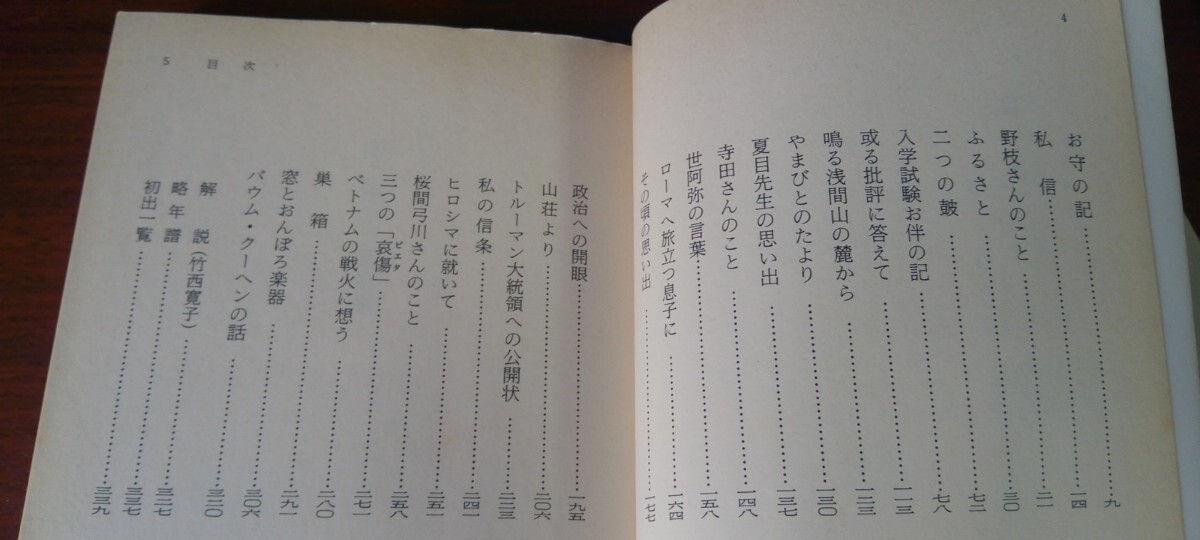 4
お守の記……九
私信……一四
野枝さんのこと……二一
ふるさと……三〇
二つの鼓……七二
入学試験お伴の記……七八
或る批評に答えて……一一三
鳴る浅間山の麓から……一二三
やまびとのたより……一三〇
夏目先生の思い出……一三七
寺田さんのこと……一四八
世阿弥の言葉……一五八
ローマへ旅立つ息子に……一六四
その頃の思い出……一七七
5 目次
政治への開眼……一九五
山荘より……二〇六
トルーマン大統領への公開状……二二三
私の信条……二四一
ヒロシマに就いて……二五一
桜間弓川さんのこと……二五八
三つの「哀傷(ピエタ)」……二七一
ベトナムの戦火に想う……二八〇
巣箱……二九一
窓とおんぼろ楽器……三〇六
バウム・クーヘンの話……三二〇
解説(竹西寛子)……三二七
略年譜……三三七
初出一覧……三三九